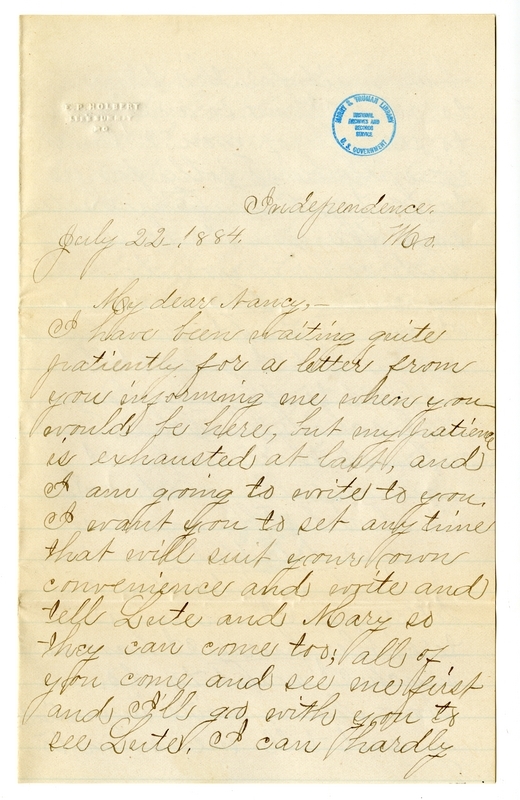 HARRY S. TRUMAN LIBRARY
NATIONAL
ARCHIVES AND
RECORDS
SERVICE
U. S. GOVERNMENT
Independence.
July 22, 1884. Mo.
My dear Nancy,—
I have been waiting quite
patiently for a letter from
you informing me when you
would be here, but my patience
is exhausted at last, and
I am going to write to you.
I want you to set any time
that will suit your own
convenience and write and
tell Lute and Mary so
they can come too; all of
you come and see me first
and I'll go with you to
see Lute. I can hardly